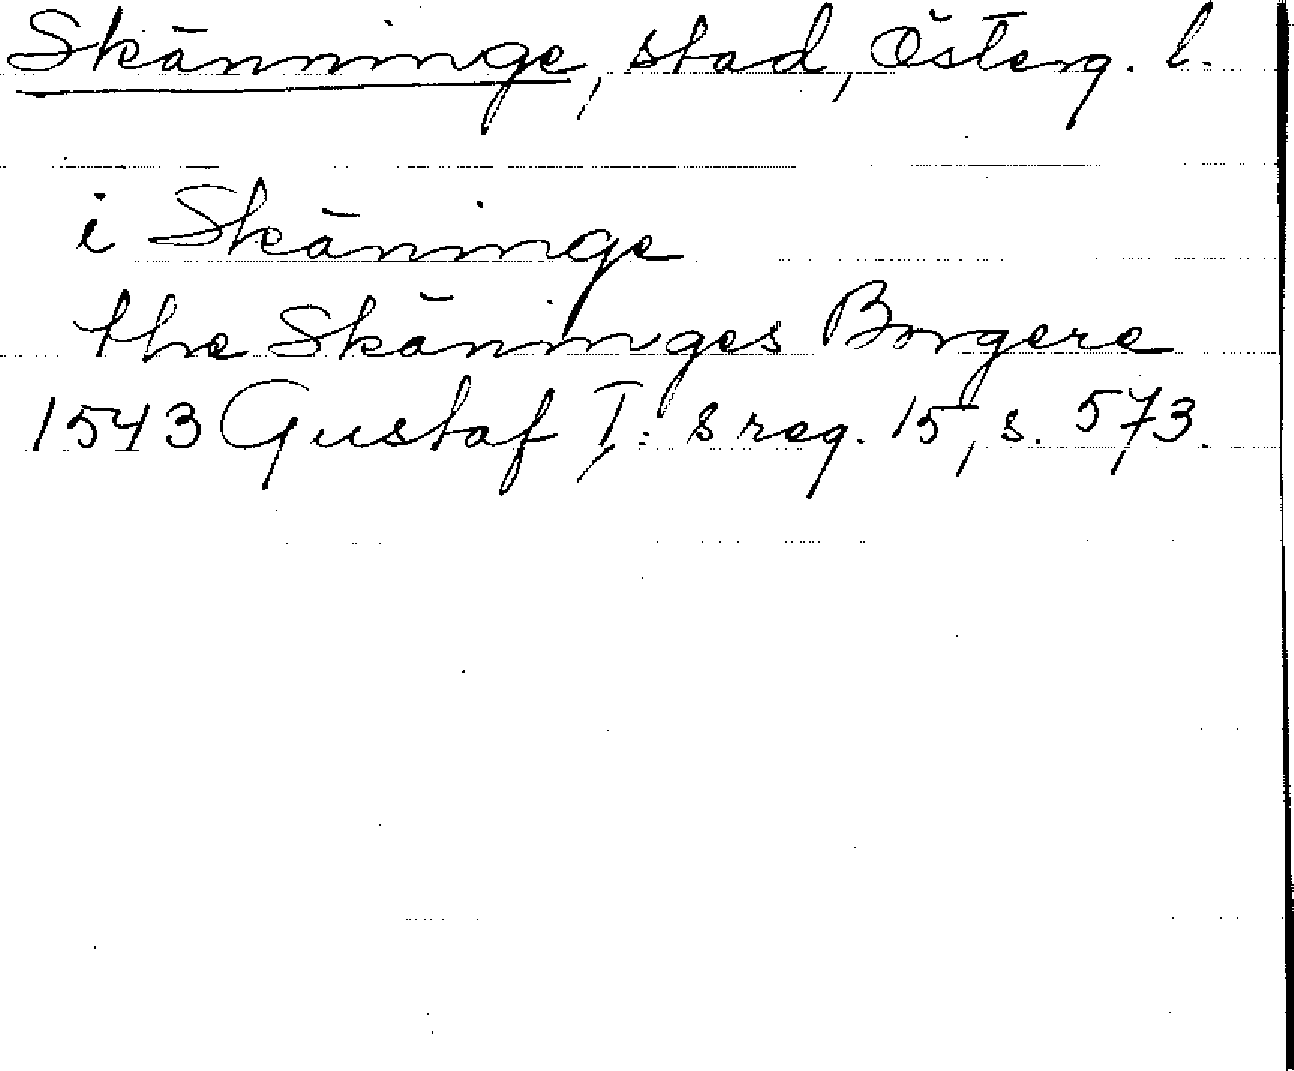 Skänninge, stad, Österg. l.
i Skäninge
the Skäninges Borgere
1543 Gustaf I:s reg. 15, s. 573.